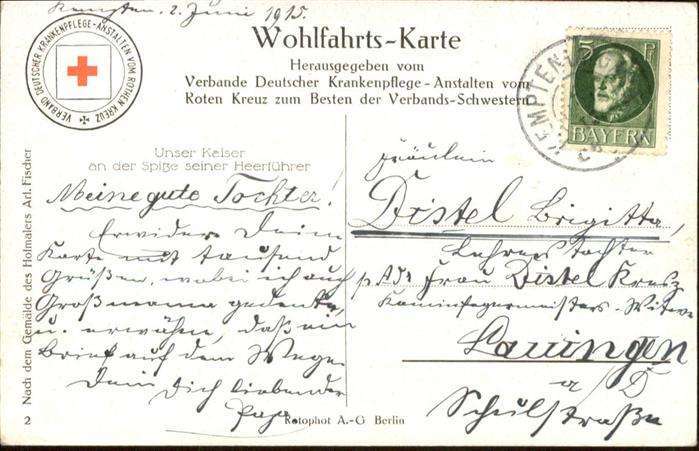 Kempten, 2. Juni 1915.
VERBAND DEUTSCHER KRANKENPFLEGE-ANSTALTEN VOM ROTHEN KREUZ
Wohlfahrts-Karte
Herausgegeben vom
Verbande Deutscher Krankenpflege-Anstalten vom
Roten Kreuz zum Besten der Verbands-Schwestern
5 Pf
BAYERN
KEMPTEN
Unser Kaiser
an der Spitze seiner Heerführer
Meine gute Tochter!
Erwidere Deine
Karte mit tausend
Grüßen, wobei ich auch
Großmama gedenke,
u. erwähne, daß ein
Brief auf dem Wege.
Dein Dich liebender
Papa
Fräulein
Distel Brigitta,
Lehrers Tochter
p. Adr. Frau Distel Kresz.
Kaminfegermeisters-Witwe
Lauingen
a/D
Schulstraße
Nach dem Gemälde des Hofmalers Art. Fischer
2
Rotophot A.-G Berlin